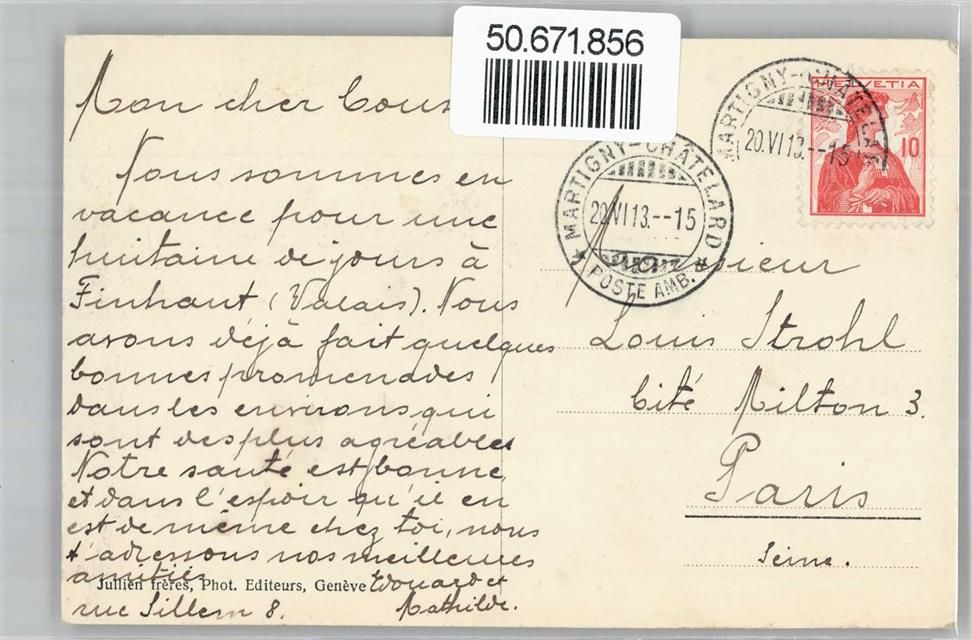 50.671.856
Mon cher Cous
Nous sommes en
vacance pour une
huitaine de jours à
Finhaut (Valais). Nous
avons déjà fait quelques
bonnes promenades
dans les environs qui
sont des plus agréables
Notre santé est bonne
et dans l'espoir qu'il en
est de même chez toi, nous
t'adressons nos meilleures
amitiés
Edouard et
Mathilde.
rue Sillem 8.
Jullien frères, Phot. Editeurs, Genève
MARTIGNY-CHÂTELARD
20.VI 13.--15
HELVETIA
10
MARTIGNY-CHÂTELARD
20.VI 13.--15
POSTE AMB.
Monsieur
Louis Strohl
Cité Milton 3.
Paris
Seine.